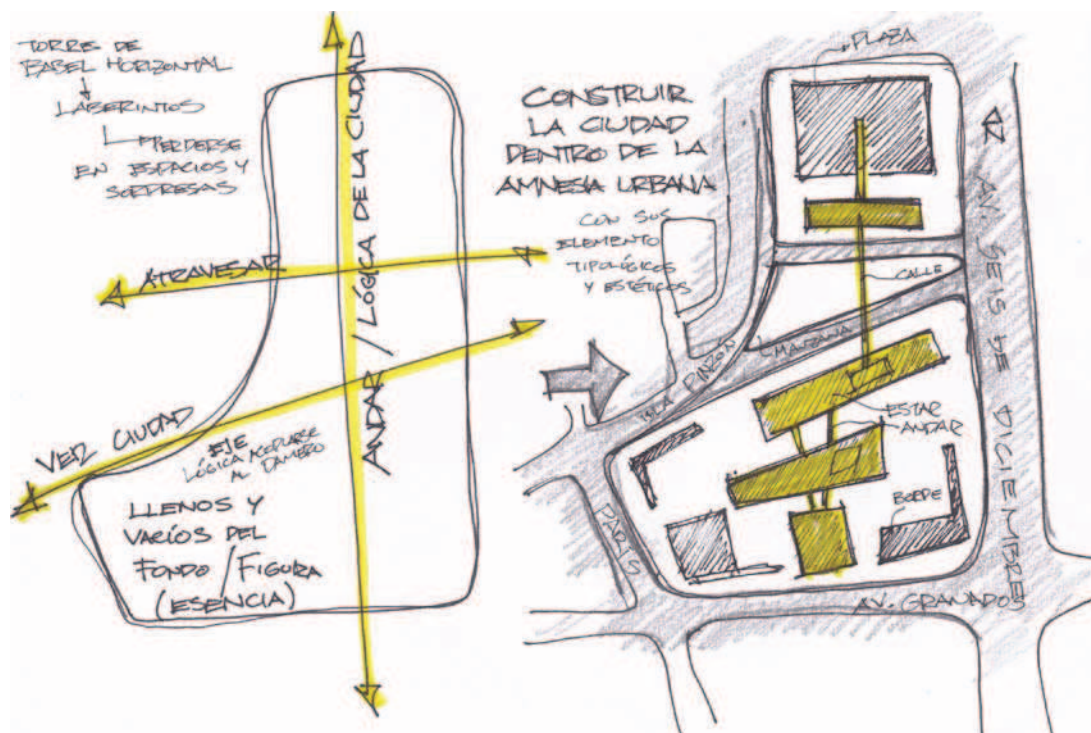 TORRE DE
BABEL HORIZONTAL
LABERINTOS
PERDERSE
EN ESPACIOS Y
SORPRESAS
ATRAVESAR
ANDAR / LÓGICA DE LA CIUDAD
VER CIUDAD
EJE
LÓGICA ACOPLARSE
AL DAMERO
LLENOS Y
VACÍOS DEL
FONDO / FIGURA
(ESENCIA)
CONSTRUIR
LA CIUDAD
DENTRO DE LA
AMNESIA URBANA
CON SUS
ELEMENTO
TIPOLÓGICOS
Y ESTÉTICOS
PLAZA
AV. SEIS DE DICIEMBRE
CALLE
MANZANA
ISLA PINZÓN
ESTAR
ANDAR
BORDE
PARIS
AV. GRANADOS